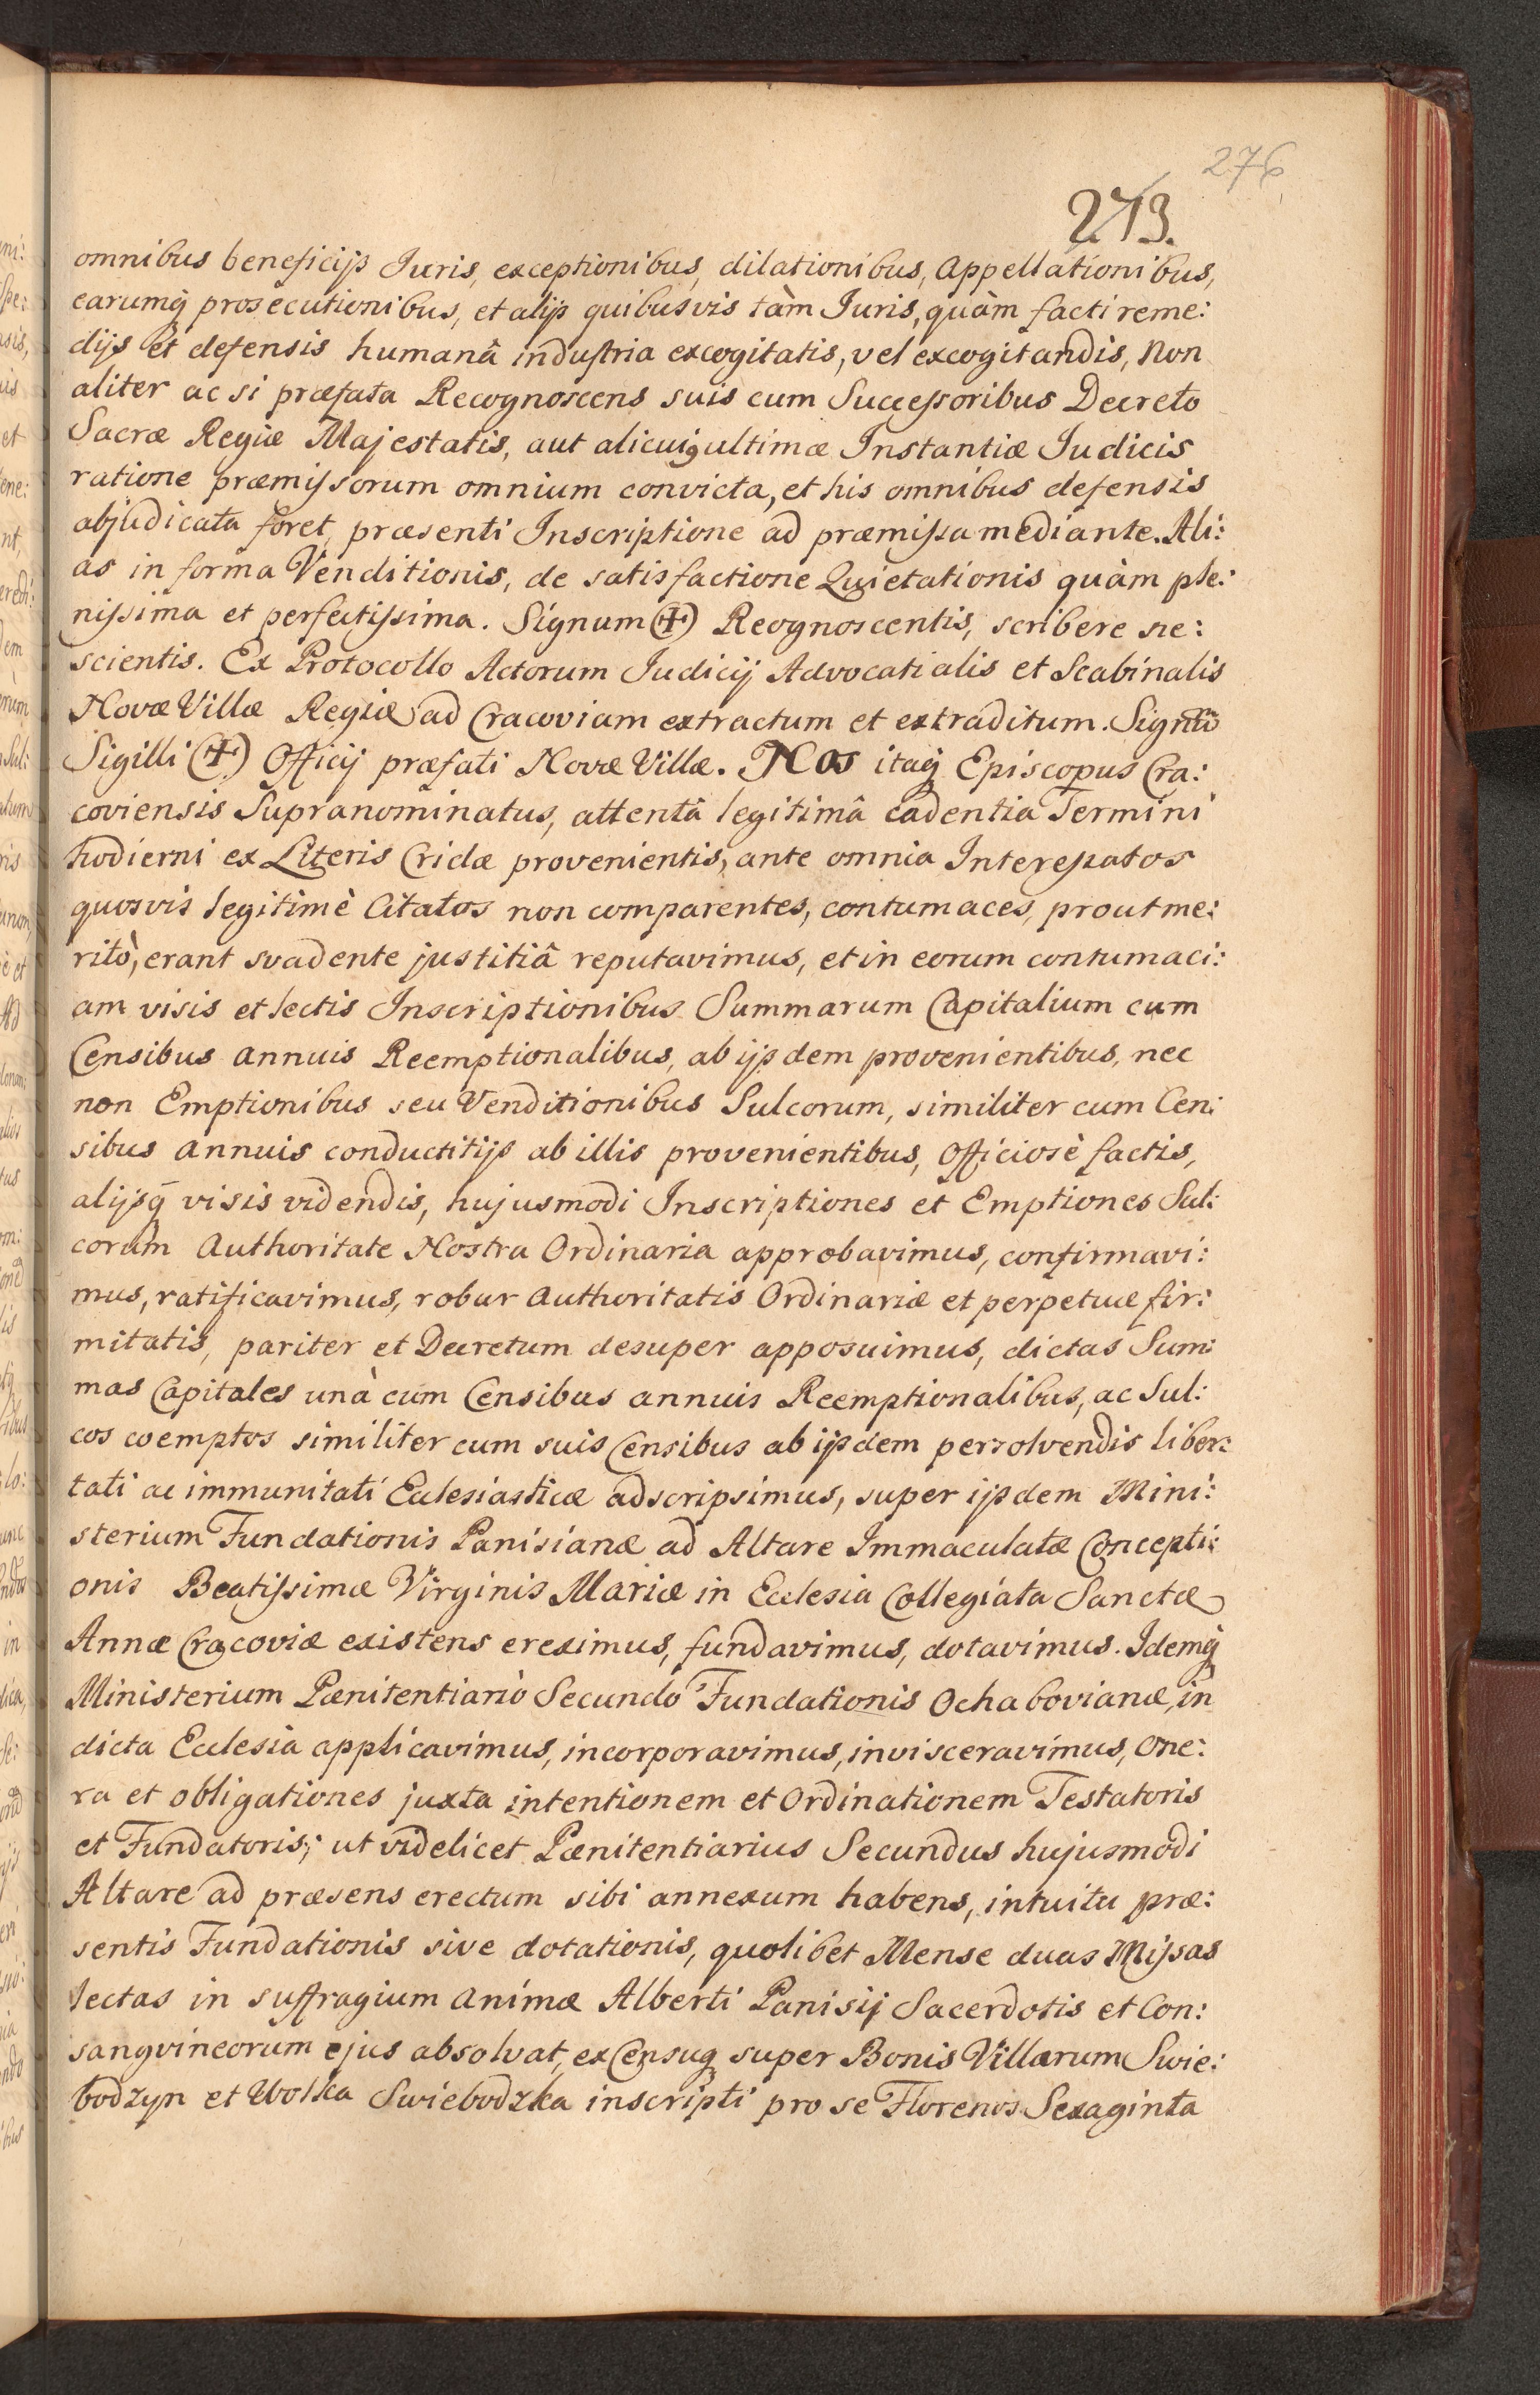 276
273.
omnibus beneficijs Juris, exceptionibus, dilationibus, Appellationibus,
earumq́ prosecutionibus, et alijs quibusvis tàm Juris, quàm facti reme:
dijs et defensis humanâ industria excogitatis, vel excogitandis, Non
aliter ac si præfata Recognoscens suis cum Successoribus Decreto
Sacræ Regiæ Majestatis, aut alicuiꝯ ultimæ Instantiæ Judicis
ratione præmissorum omnium convicta, et his omnibus defensis
abjudicata foret, præsenti Inscriptione ad præmissa mediante. Ali:
as in forma Venditionis, de satisfactione Quietationis quàm ple:
nissima et perfectissima. Signum (+) Recognoscentis, scribere ne:
scientis. Ex Protocollo Actorum Judicij Advocatialis et Scabinalis
Novæ Villæ Regiæ ad Cracoviam extractum et extraditum. Signũ
Sigilli (+) Officij præfati Novæ Villæ. Nos itaq́ Episcopus Cra:
coviensis Supranominatus, attentâ legitimâ cadentia Termini
hodierni ex Literis Cridæ provenientis, ante omnia Interessatos
quosvis legitimè Citatos non comparentes, contumaces, prout me:
ritò, erant svadente justitiâ reputavimus, et in eorum contumaci:
am visis et lectis Inscriptionibus Summarum Capitalium cum
Censibus annuis Reemptionalibus, ab ijsdem provenientibus, nec
non Emptionibus seu Venditionibus Sulcorum, similiter cum Cen:
sibus annuis conductitijs ab illis provenientibus, Officiosè factis,
alijsq̄ visis videndis, hujusmodi Inscriptiones et Emptiones Sul:
corum Authoritate Nostra Ordinaria approbavimus, confirmavi:
mus, ratificavimus, robur Authoritatis Ordinariæ et perpetuæ fir:
mitatis, pariter et Decretum desuper apposuimus, dictas Sum:
mas Capitales unà cum Censibus annuis Reemptionalibus, ac Sul:
cos coemptos similiter cum suis Censibus ab ijsdem persolvendis liber:
tati ac immunitati Ecclesiasticæ adscripsimus, super ijsdem Mini:
sterium Fundationis Panisianæ ad Altare Immaculatæ Concepti:
onis Beatissimæ Virginis Mariæ in Ecclesia Collegiata Sanctæ
Annæ Cracoviæ existens ereximus, fundavimus, dotavimus. Idemq́
Ministerium Pænitentiariò Secundo Fundationis Ochabovianæ, in
dicta Ecclesia applicavimus, incorporavimus, invisceravimus, One:
ra et obligationes juxta intentionem et Ordinationem Testatoris
et Fundatoris; ut videlicet Pænitentiarius Secundus hujusmodi
Altare ad præsens erectum sibi annexum habens, intuitu præ:
sentis Fundationis sive dotationis, quolibet Mense duas Missas
lectas in suffragium animæ Alberti Panisij Sacerdotis et Con:
sangvineorum ejus absolvat, ex Censuq super Bonis Villarum Swie:
bodzyn et Wolka Swiebodzka inscripti pro se Florenos Sexaginta